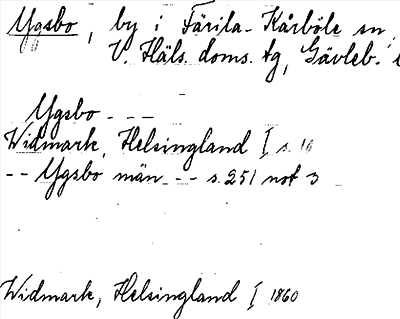 Ygsbo, by i Färila-Kårböle sn,
V. Häls. doms. tg, Gävleb. l
Ygsbo - - -
Widmark, Helsingland I s. 10
-- Ygsbo män -- s. 251 not 3
Widmark, Helsingland I 1860